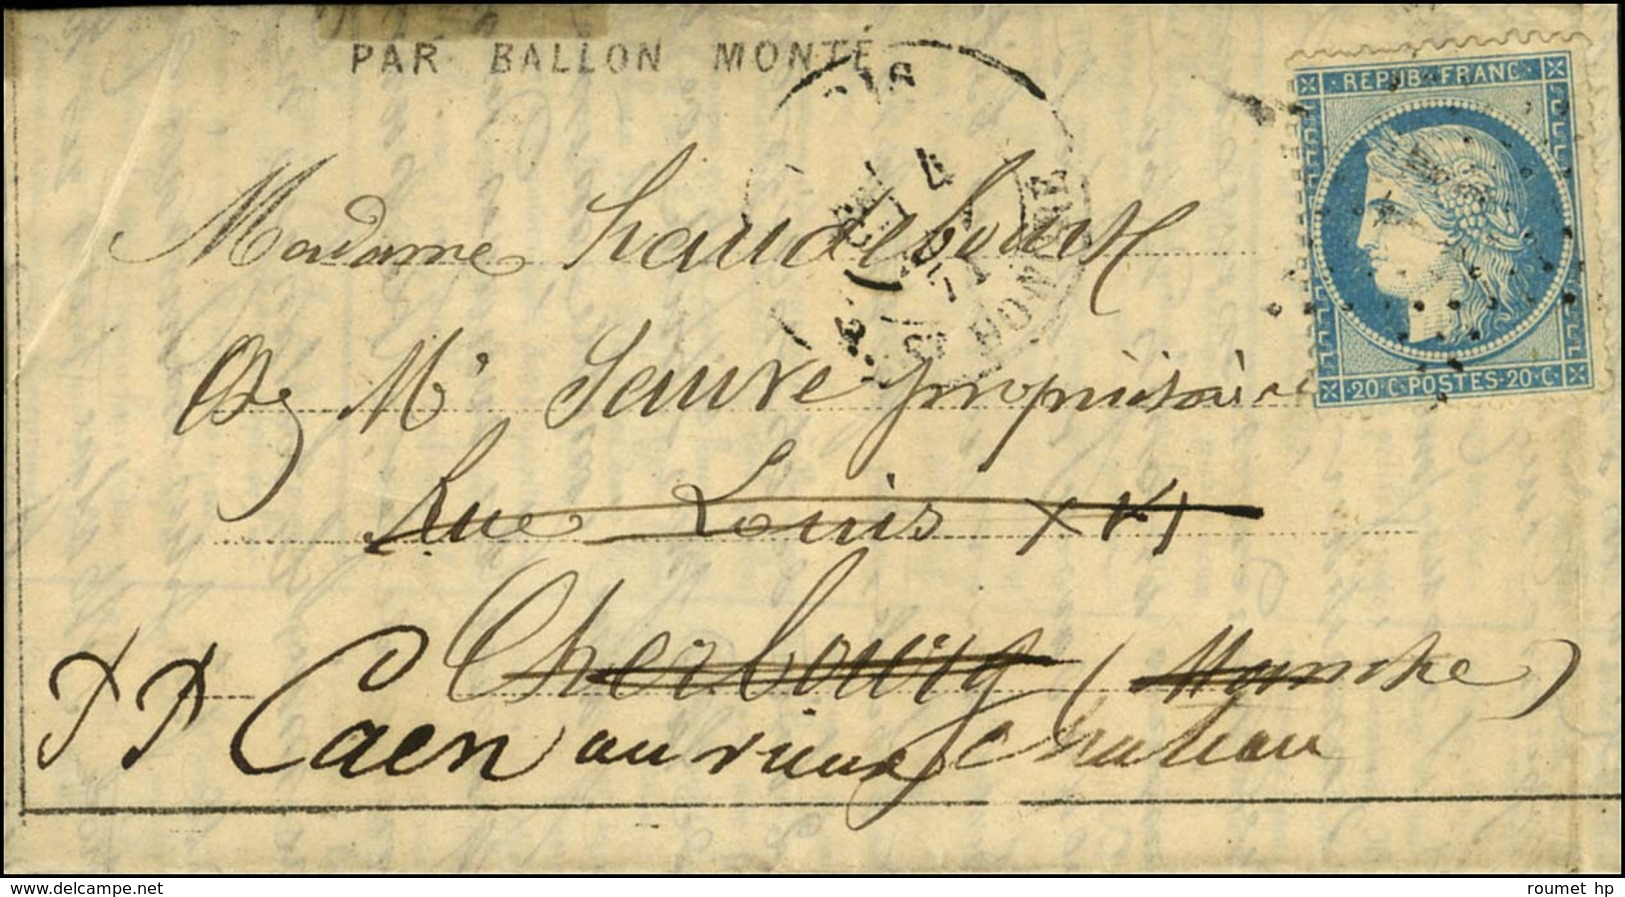 PAR BALLON MONTÉ
REPUB. FRANC.
Madame
Chez Mr Sauvé propriétaire
Rue Louis XVI
Cherbourg (Manche)
PP Caen au vieux Chateau
20·C·POSTES·20·C
ST HONORÉ
4
71
www.delcampe.net
roumet hp